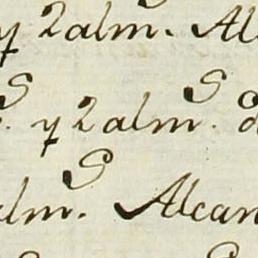 y 2 alm.s Al
s. y 2 alm.s d
alm.s Alcan